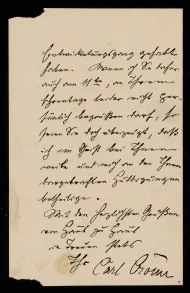 Entwickelungsgang gehabt
haben. Wenn ich Sie daher
auch am 11ten, an Ihrem
Ehrentage leider nicht per-
sönlich begrüßen darf, so
seien Sie doch überzeugt, daß
ich im Geist bei Ihnen
weile und mich an den Ihnen
dargebrachten Huldigungen
betheilige.
Mit den herzlichsten Grüßen
von Haus zu Haus
in Treuen stets
Ihr Carl